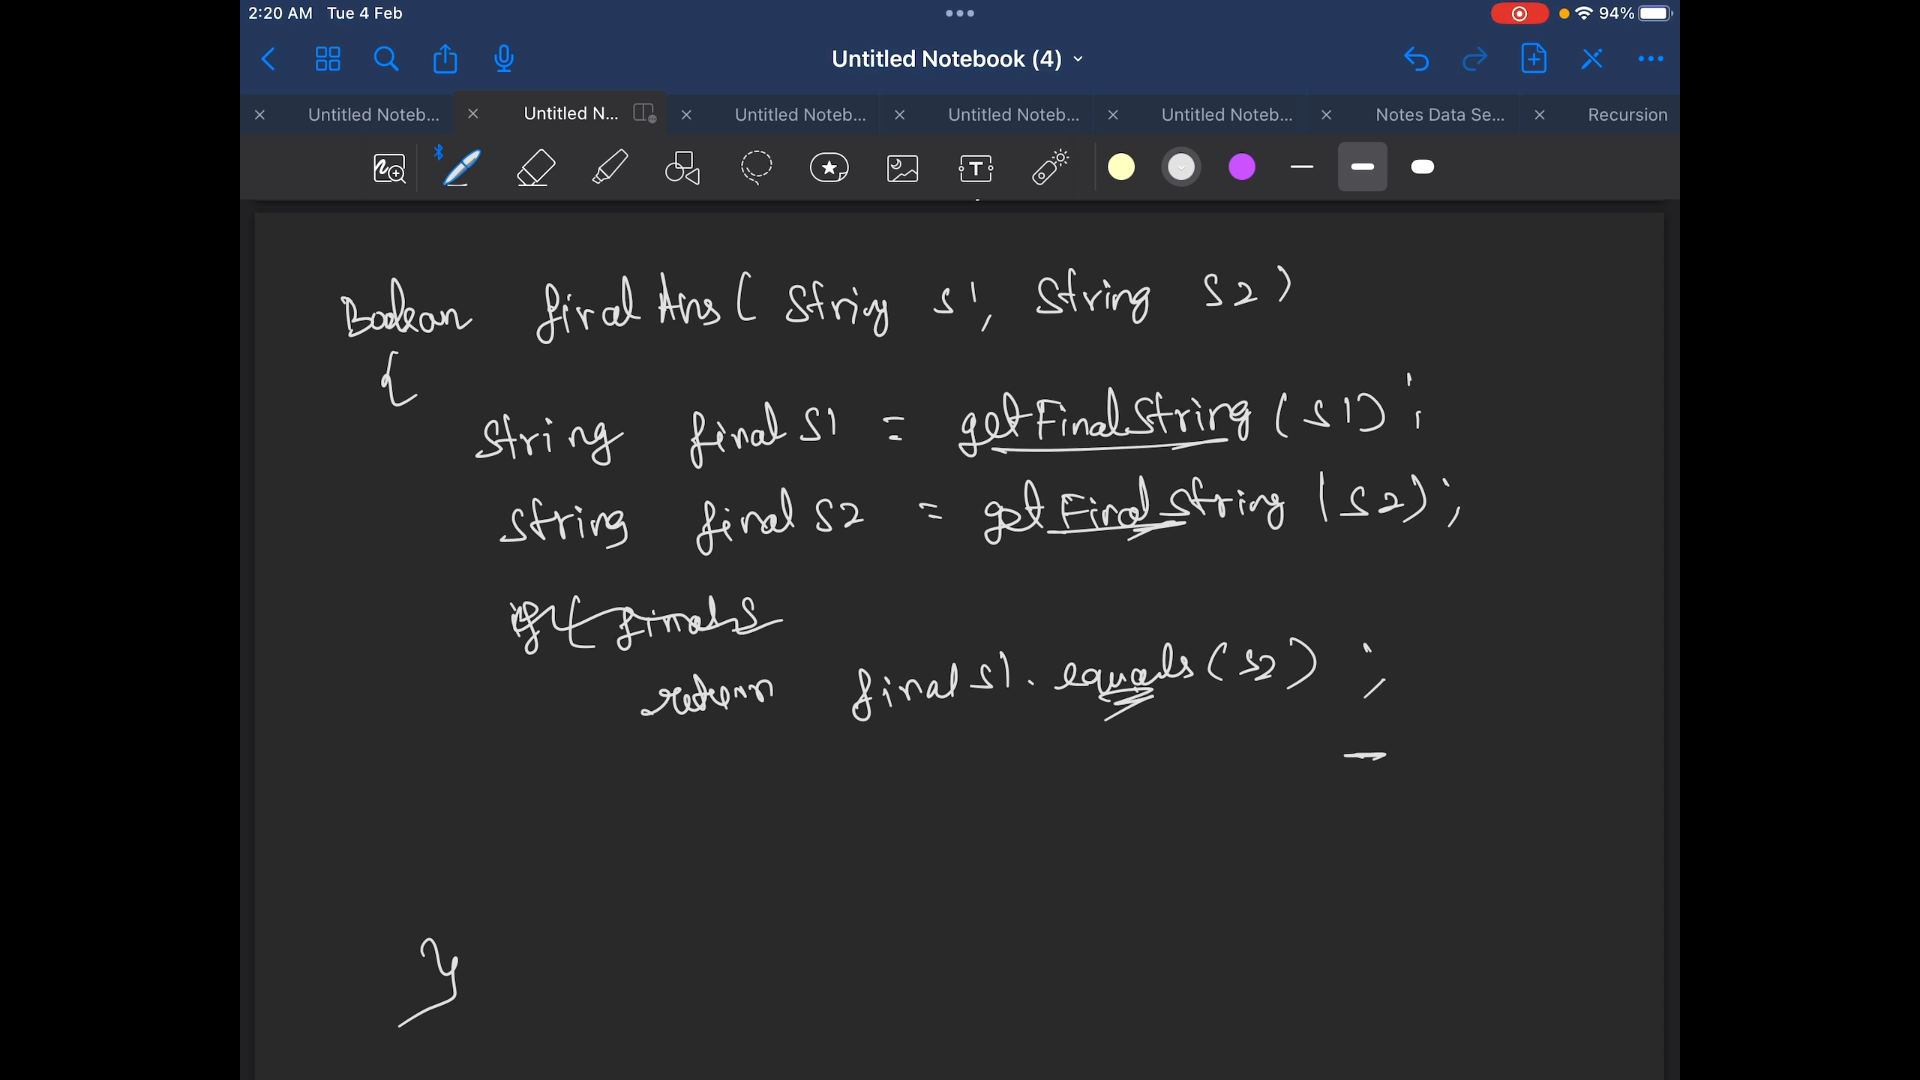 2:20 AM Tue 4 Feb 94%
Untitled Notebook (4)
Untitled Noteb... Untitled N... Untitled Noteb... Untitled Noteb... Untitled Noteb... Notes Data Se... Recursion
Boolean finalAns( String s1, String s2)
{
String finalS1 = getFinalString(s1);
String finalS2 = getFinalString(s2);
if( finalS
return finalS1.equals(s2) ;
}